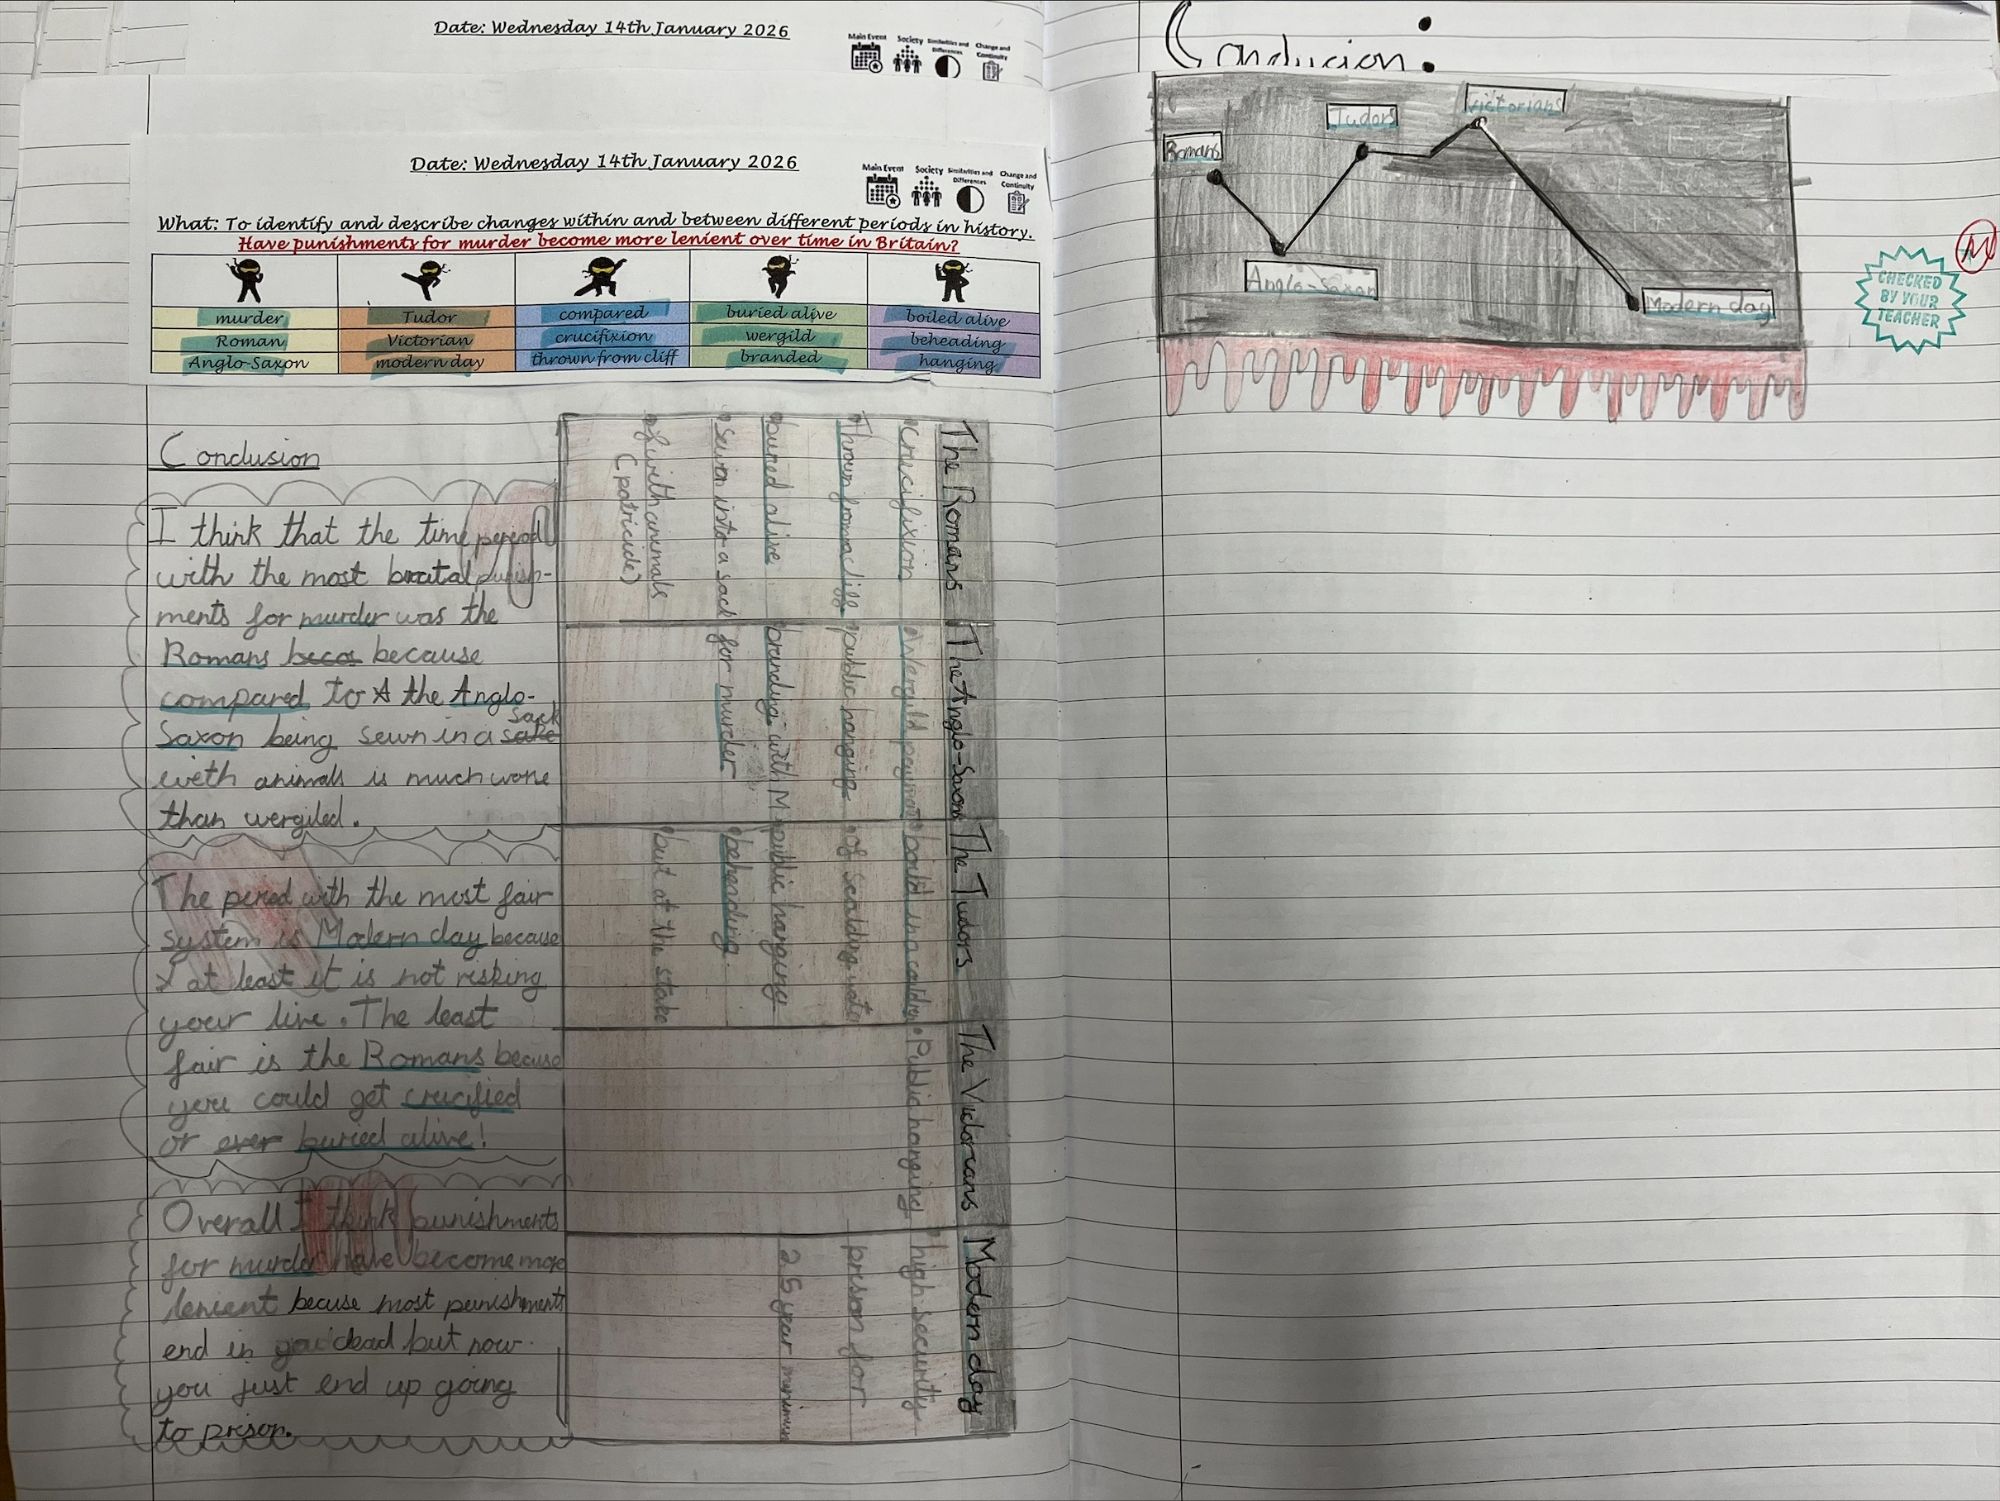 Date: Wednesday 14th January 2026
Main Event
Society
Similarities and Differences
Change and Continuity
Date: Wednesday 14th January 2026
Main Event
Society
Similarities and Differences
Change and Continuity
What: To identify and describe changes within and between different periods in history.
Have punishments for murder become more lenient over time in Britain?
murder Tudor compared buried alive boiled alive
Roman Victorian crucifixion wergild beheading
Anglo-Saxon modern day thrown from cliff branded hanging
Conclusion
I think that the time period
with the most brutal punish-
ments for murder was the
Romans becos because
compared to the Anglo-
Saxon being sewn in a sake sack
with animals is much worse
than wergiled.
The period with the most fair
system is Modern day because
at least it is not risking
your live. The least
fair is the Romans becuse
you could get crucified
or ever buried alive!
Overall I think punishments
for murder have become more
lenient becuse most punishments
end in dead but now
you just end up going
to prison.
The Romans
crucifixion
Thrown from a cliff
buried alive
sewn into a sack
with animals
(patricide)
The Anglo-Saxons
Wergild payment
public hanging
branding with M
for murder
The Tudors
of scalding
public hanging
beheading
at the stake
The Victorians
Public hanging
Modern day
high security
preson for
25 year minimum
Conclucion:
Romans
Anglo-Saxon
Tudors
Victorians
Modern day
CHECKED
BY YOUR
TEACHER